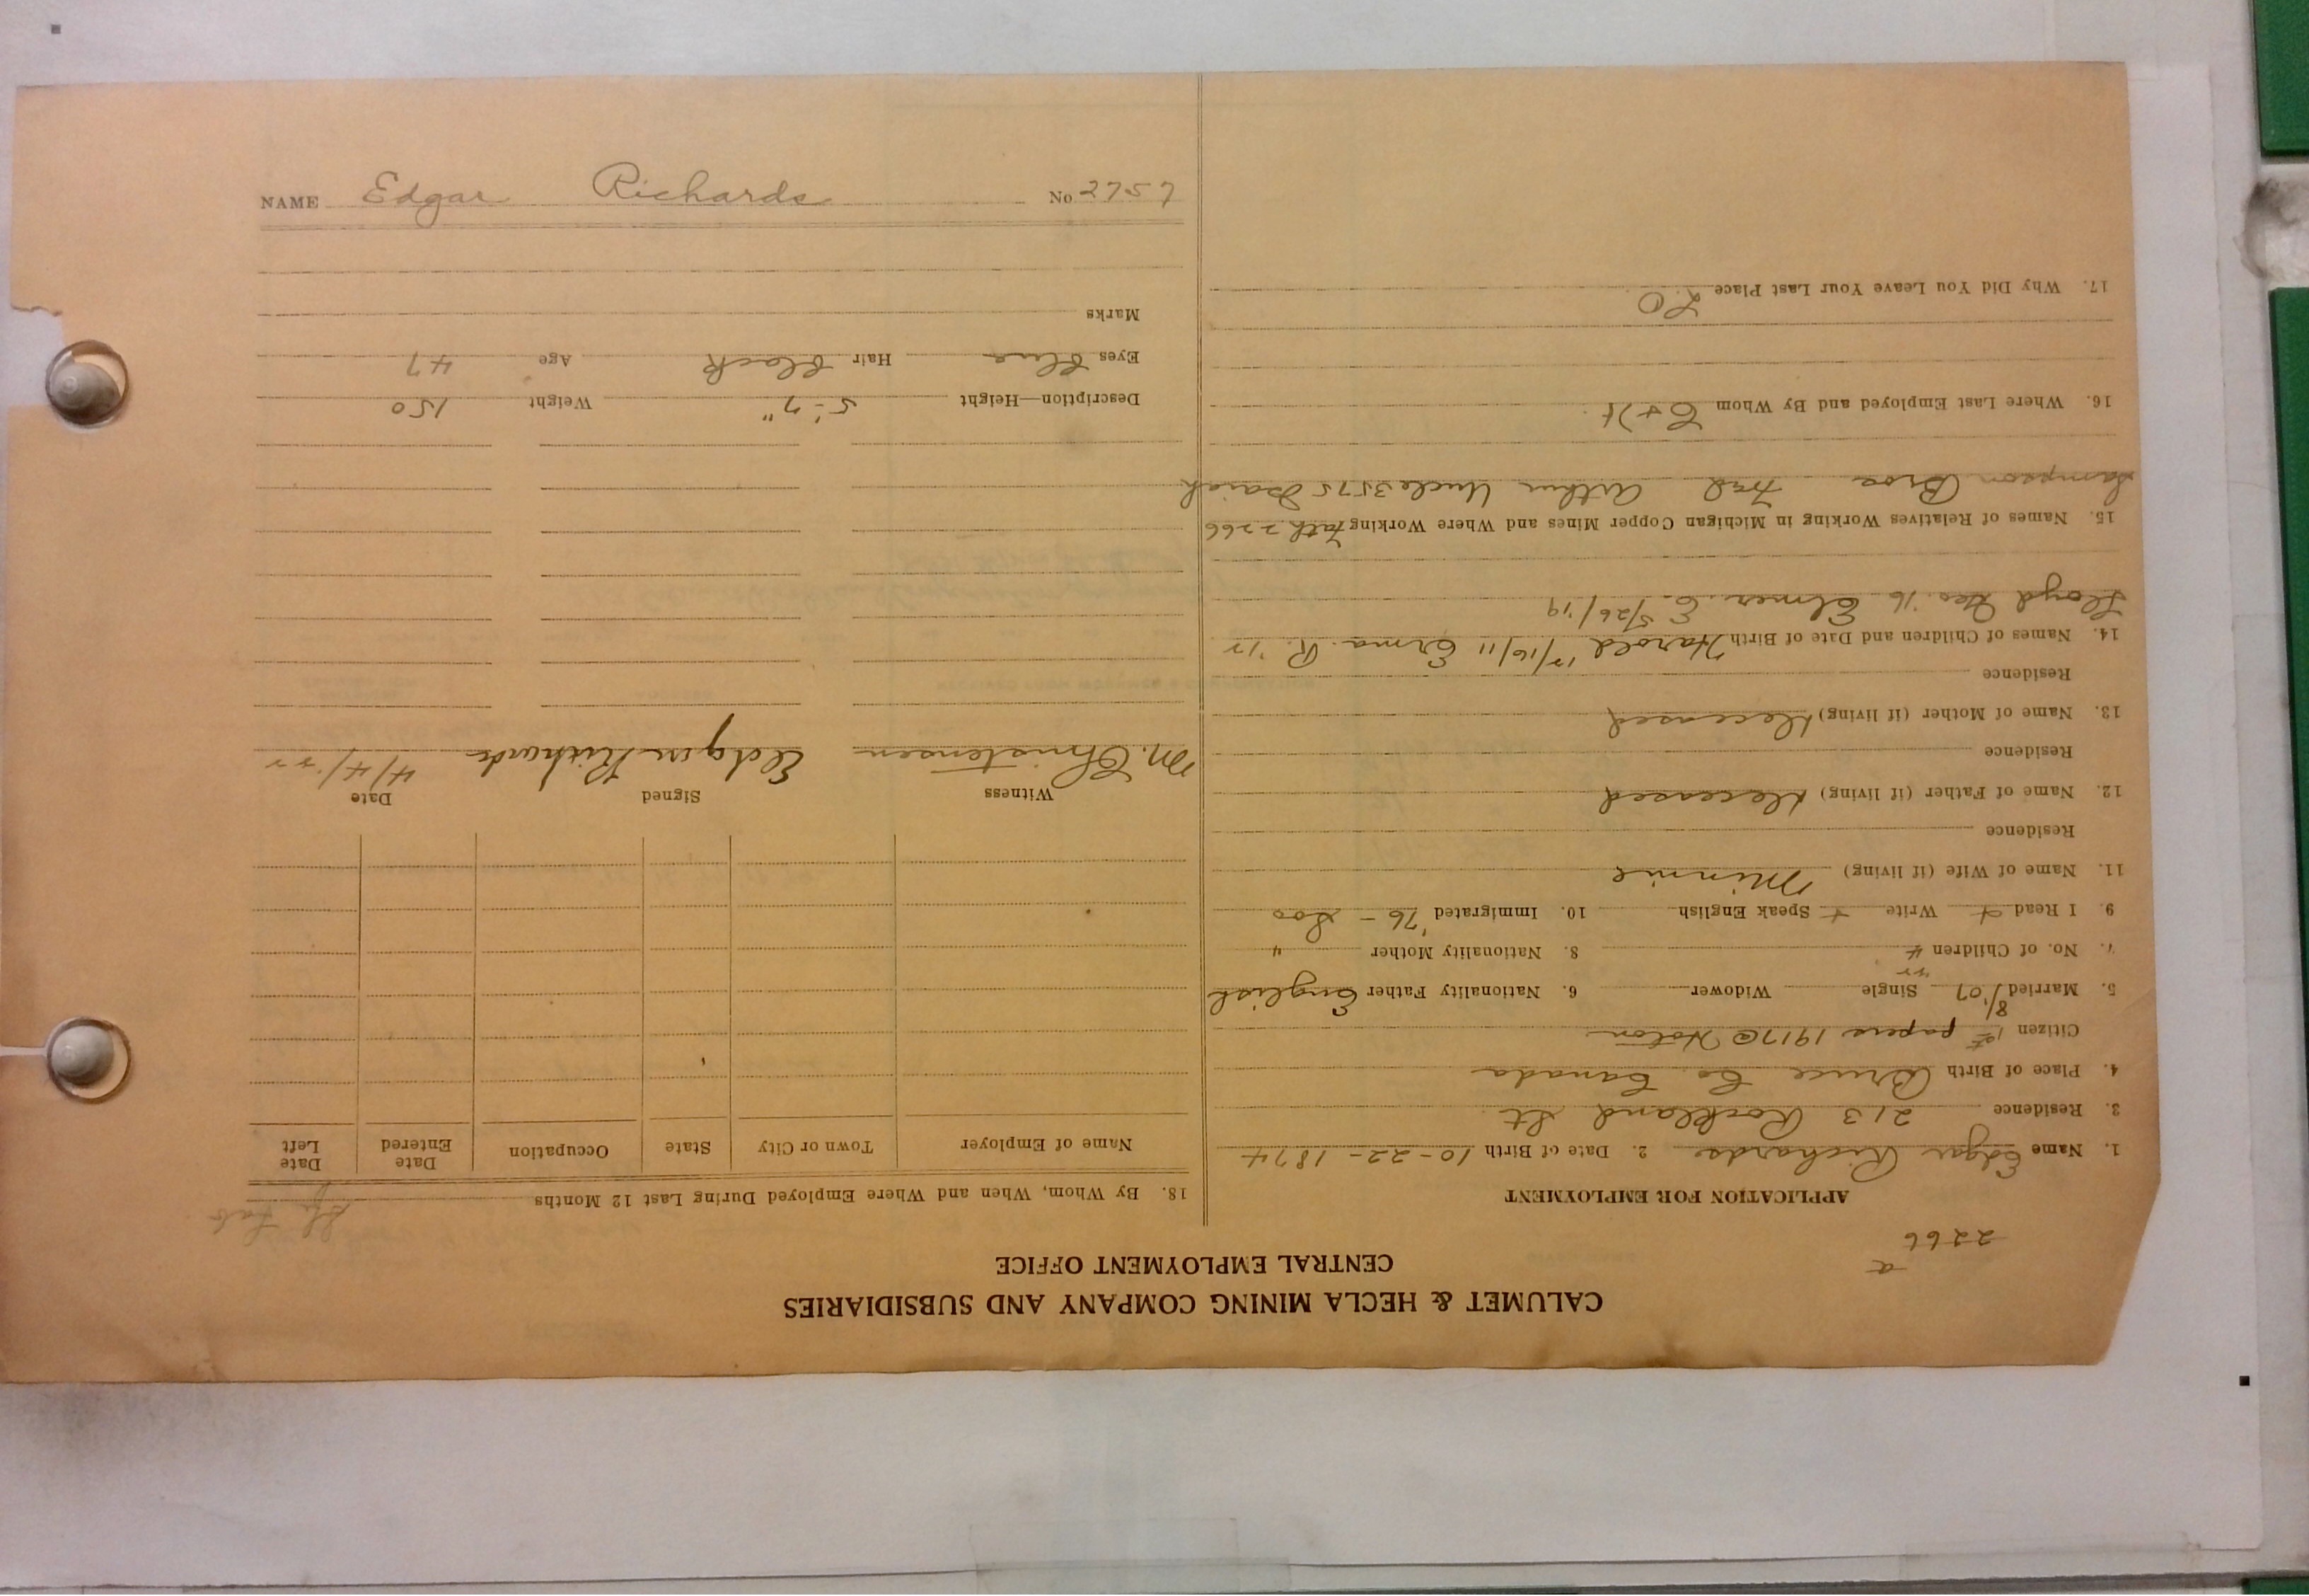 2266
CALUMET & HECLA MINING COMPANY AND SUBSIDIARIES
CENTRAL EMPLOYMENT OFFICE
APPLICATION FOR EMPLOYMENT
1. Name Edgar Richards 2. Date of Birth 10-22-1874
3. Residence 213 Rockland St
4. Place of Birth Bruce Co. Canada
Citizen 1st papers 1917 @ Hoton
5. Married 8/'07 Single Widower 6. Nationality Father English
7. No. of Children 4 8. Nationality Mother "
9. I Read + Write + Speak English 10. Immigrated '76 - Soo
11. Name of Wife (if living) Minnie
Residence
12. Name of Father (if living) deceased
Residence
13. Name of Mother (if living) deceased
Residence
14. Names of Children and Date of Birth Harold 12/16/11 Erma R. '12
Lloyd Geo. '16 Elmer E. 5/26/19
15. Names of Relatives Working in Michigan Copper Mines and Where Working Fath 2266
Sampson Bros Fred Arthur Uncle 3575 Isaiah
16. Where Last Employed and By Whom C+H
17. Why Did You Leave Your Last Place LO
18. By Whom, When and Where Employed During Last 12 Months
Name of Employer Town or City State Occupation Date Entered Date Left
Witness Signed Date
M. Christensen Edgar Richards 4/4/22
Description—Height 5'-7" Weight 150
Eyes blue Hair black Age 47
Marks
NAME Edgar Richards No 2757